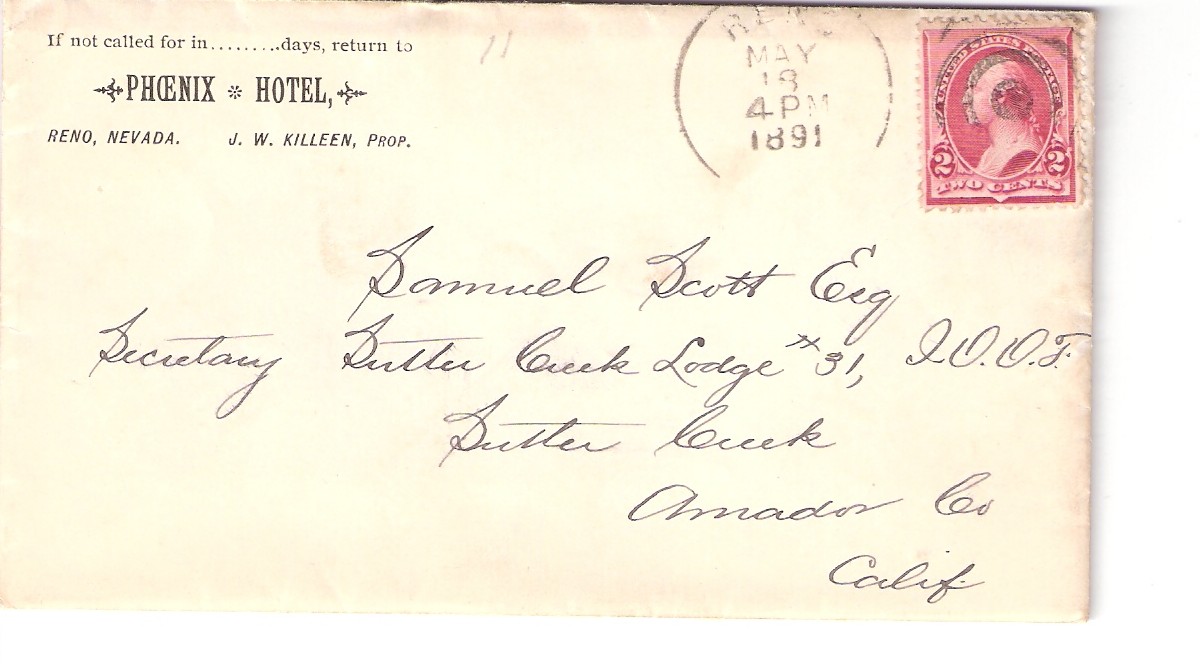 If not called for in.........days, return to
PHŒNIX * HOTEL,
RENO, NEVADA. J. W. KILLEEN, PROP.
11
RENO
MAY
18
4 PM
1891
UNITED STATES POSTAGE
2 2
TWO CENTS
Samuel Scott Esq
Secretary Sutter Creek Lodge # 31, I.O.O.F.
Sutter Creek
Amador Co
Calif.